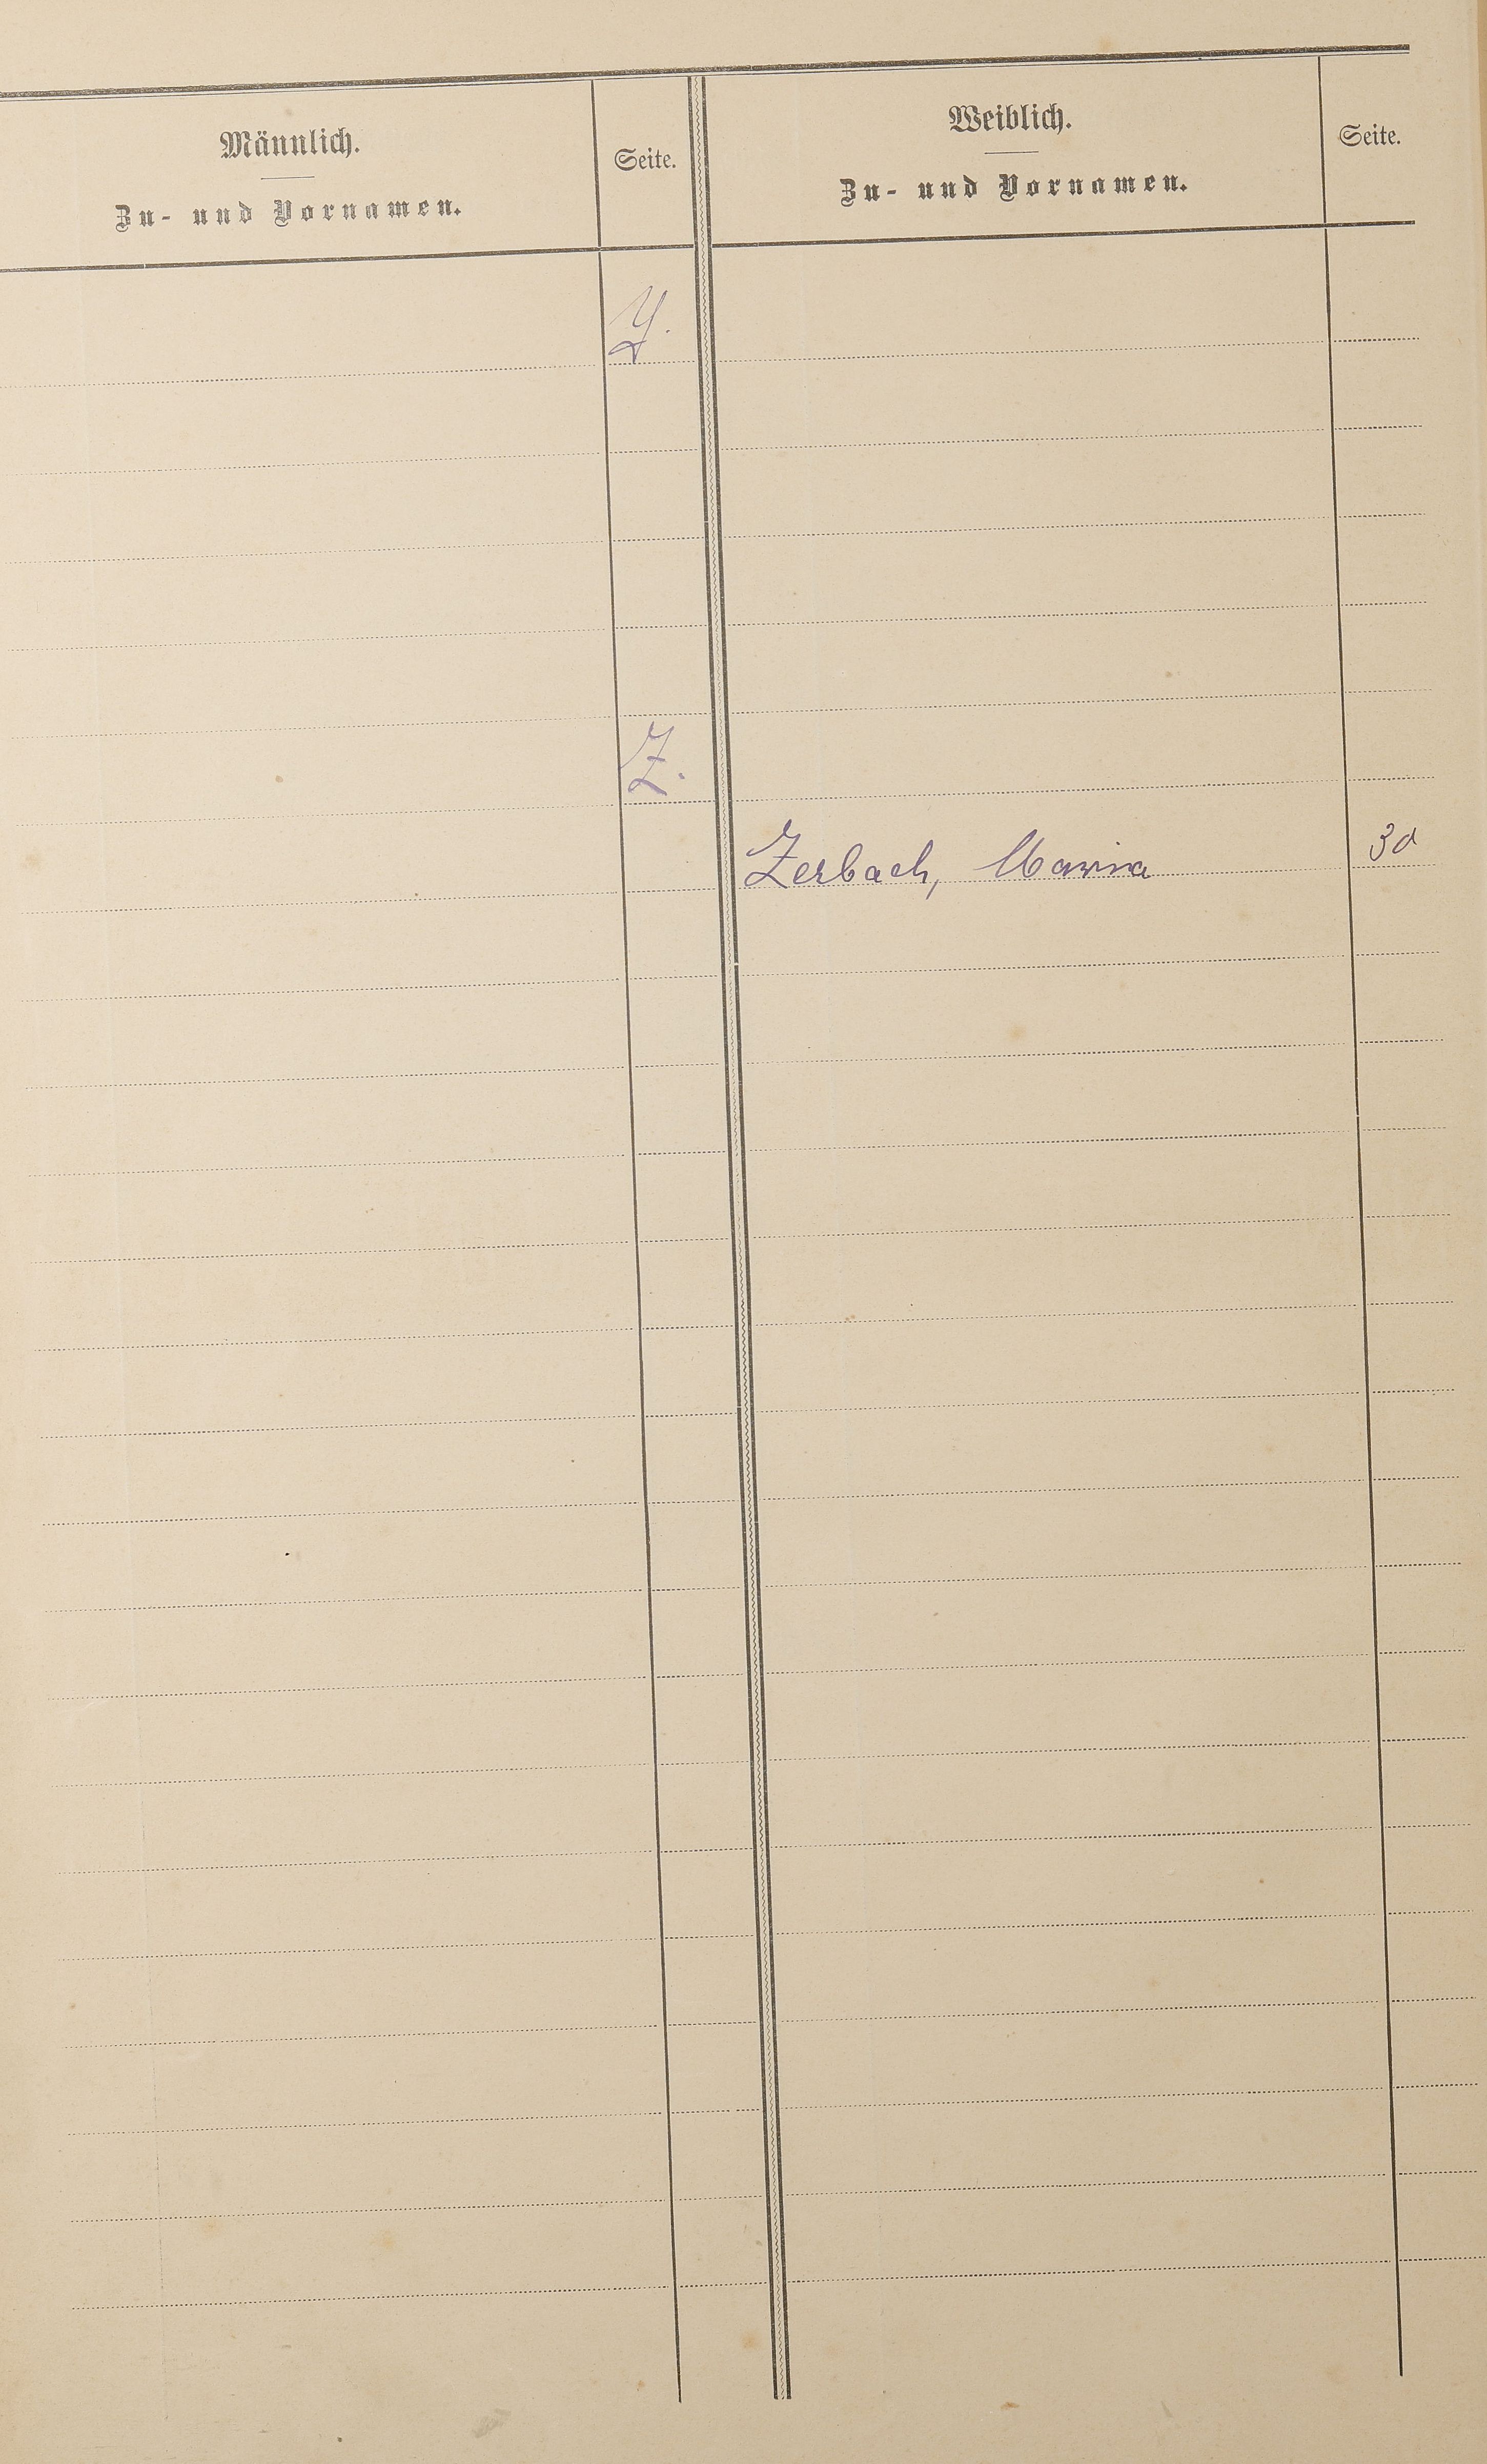 Männlich.
Zu- und Vornamen.
Seite.
Weiblich.
Zu- und Vornamen.
Seite.
Y.
Z.
Zerbach, Marina 30